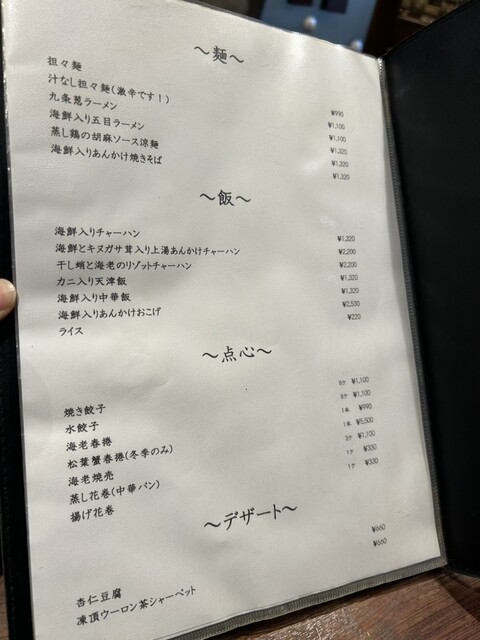 ～麺～
担々麺 ¥990
汁なし担々麺(激辛です！) ¥1,100
九条葱ラーメン ¥1,100
海鮮入り五目ラーメン ¥1,320
蒸し鶏の胡麻ソース涼麺 ¥1,320
海鮮入りあんかけ焼きそば ¥1,320
～飯～
海鮮入りチャーハン ¥1,320
海鮮とキヌガサ茸入り上湯あんかけチャーハン ¥2,200
干し蛸と海老のリゾットチャーハン ¥2,200
カニ入り天津飯 ¥1,320
海鮮入り中華飯 ¥1,320
海鮮入りあんかけおこげ ¥2,530
ライス ¥220
～点心～
焼き餃子 8ケ ¥1,100
水餃子 8ケ ¥1,100
海老春捲 1本 ¥990
松葉蟹春捲(冬季のみ) 1本 ¥5,500
海老焼売 3ケ ¥1,100
蒸し花巻(中華パン) 1ケ ¥330
揚げ花巻 1ケ ¥330
～デザート～
杏仁豆腐 ¥660
凍頂ウーロン茶シャーベット ¥660